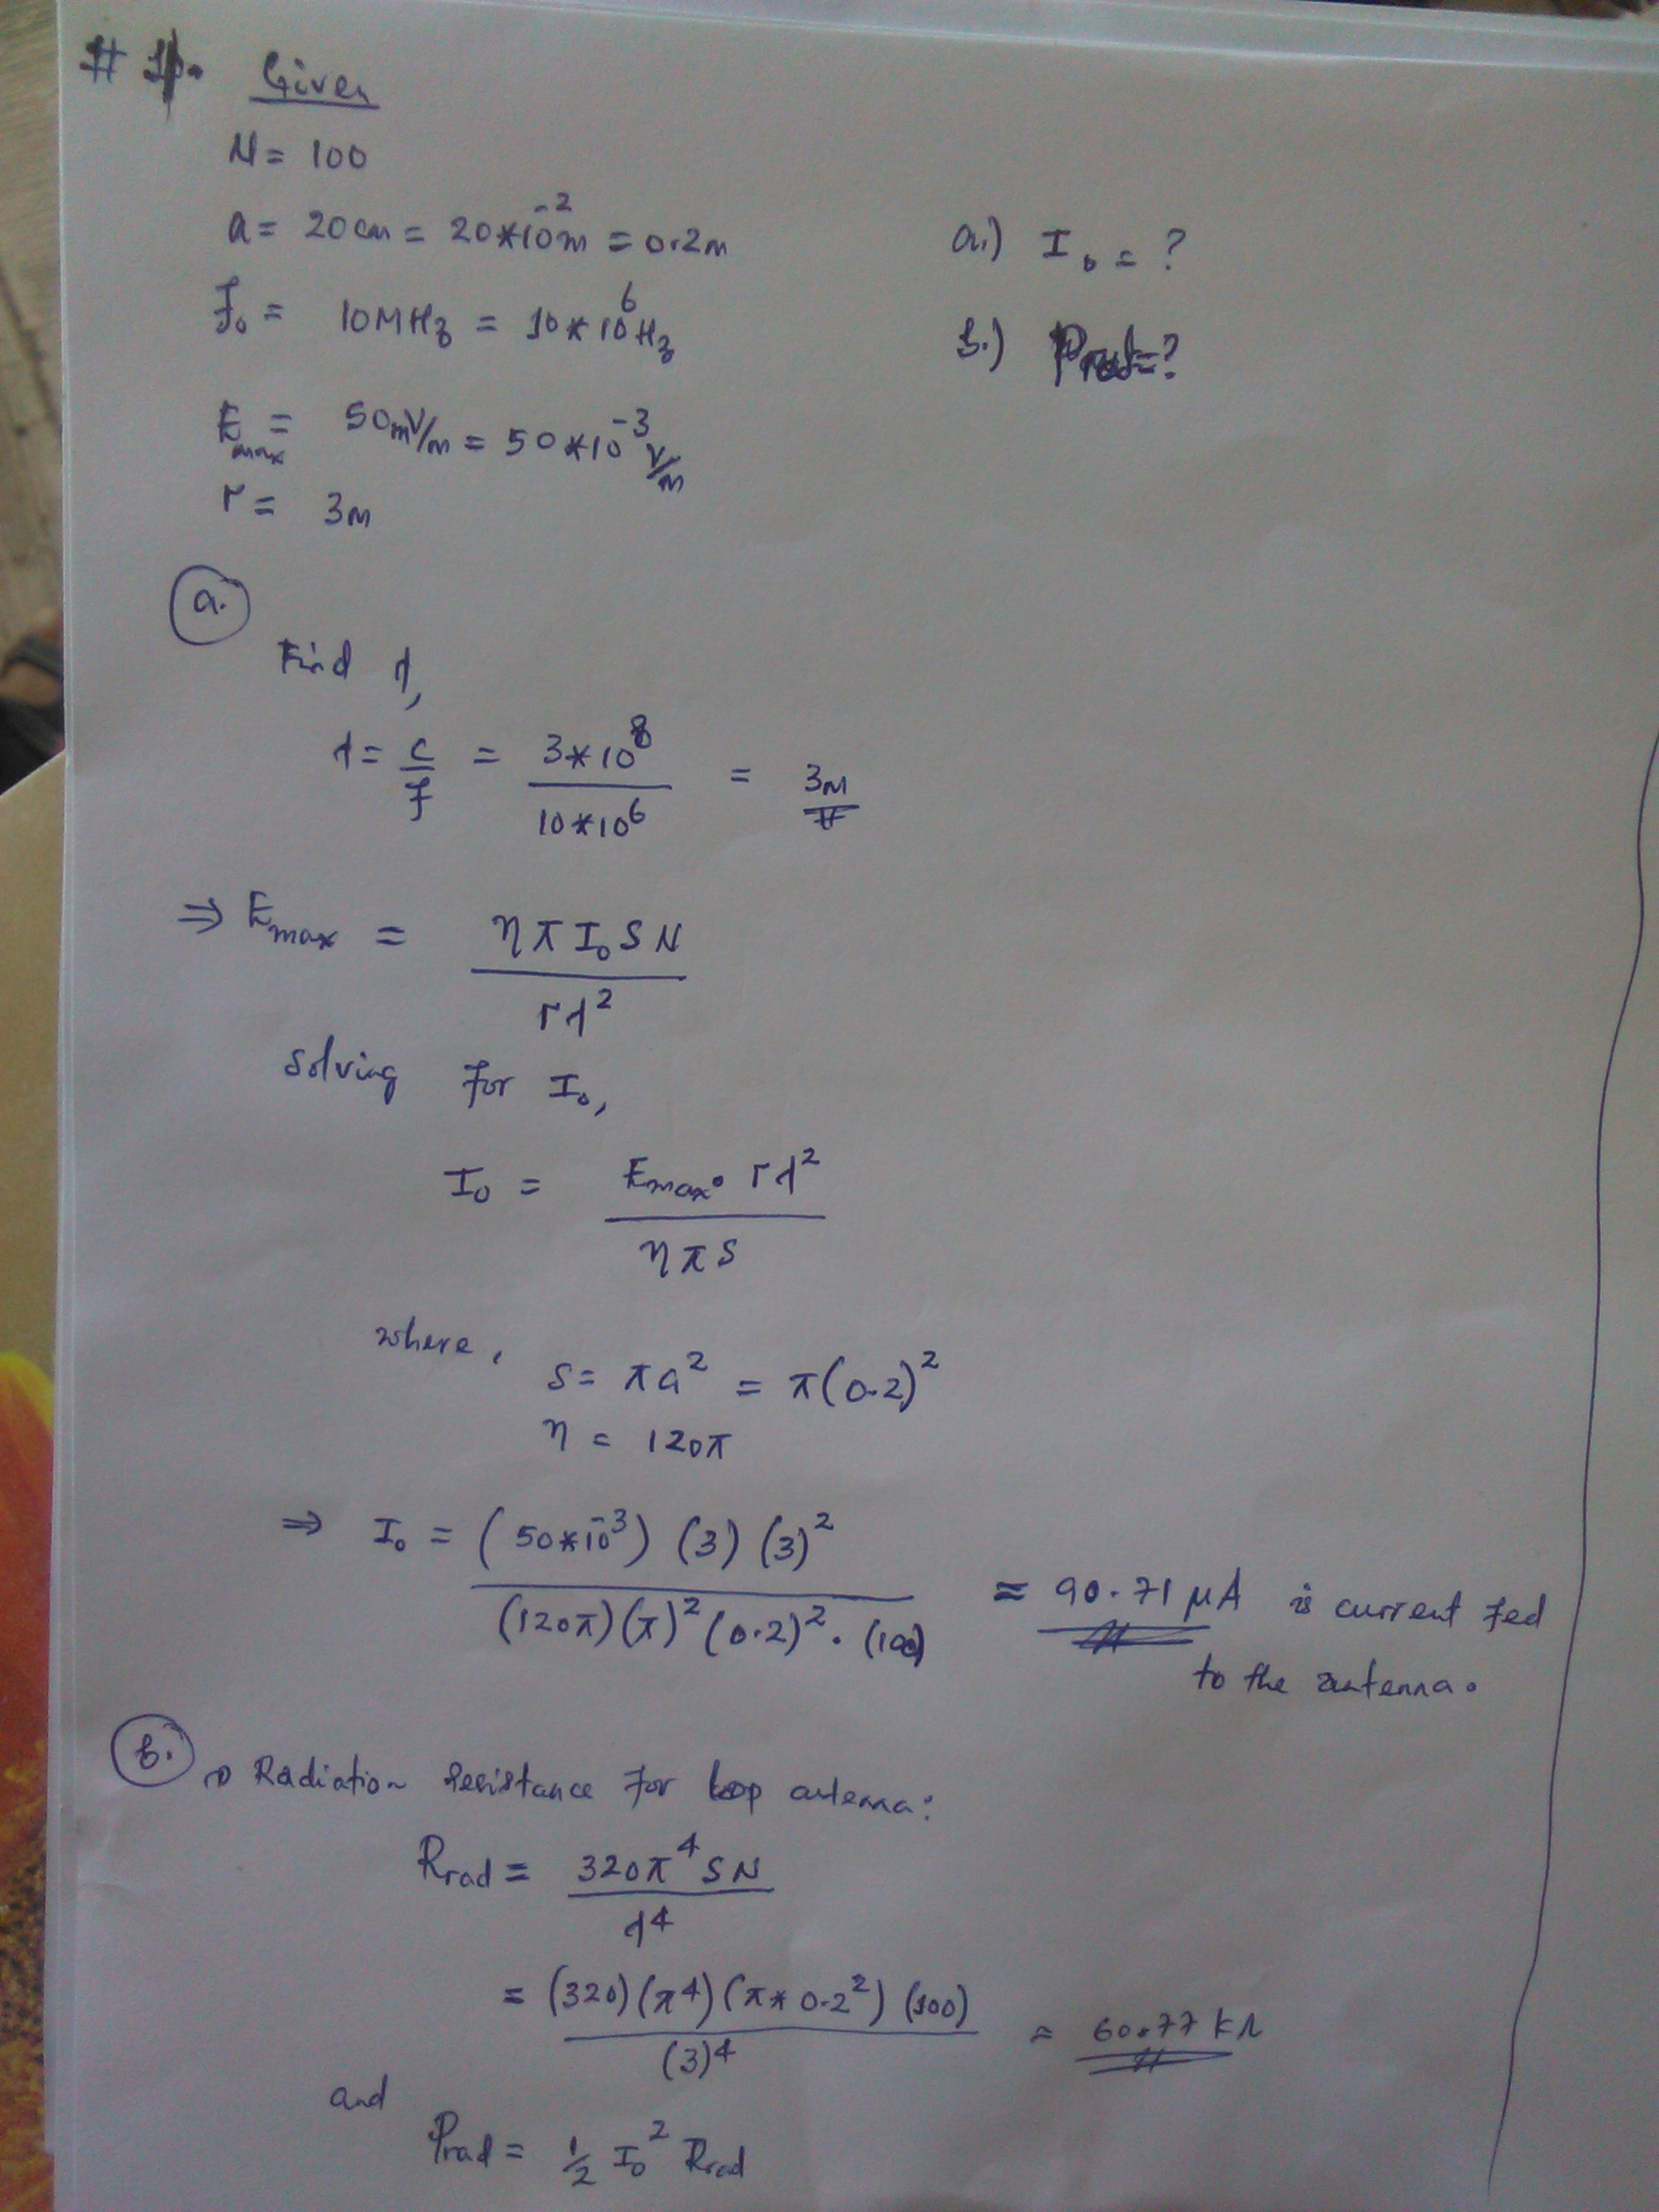 # 1. Given
N = 100
a = 20cm = 20*10^-2 m = 0.2m
a.) I₀ = ?
f₀ = 10MHz = 10*10^6 Hz
b.) Prad = ?
E_max = 50mV/m = 50*10^-3 V/m
r = 3m
a.
Find λ,
λ = c/f = 3*10^8 / 10*10^6 = 3m
⇒ E_max = ηπI₀SN / rλ²
solving for I₀,
I₀ = E_max · rλ² / ηπS
where,
S = πa² = π(0.2)²
η = 120π
⇒ I₀ = (50*10^-3) (3) (3)² / (120π)(π)²(0.2)² · (100) ≈ 90.71 μA is current fed
to the antenna.
b.
⇒ Radiation resistance for loop antenna:
Rrad = 320π⁴SN / λ⁴
= (320)(π⁴)(π*0.2²)(100) / (3)⁴ ≈ 60.77 kΩ
and
Prad = ½ I₀² Rrad